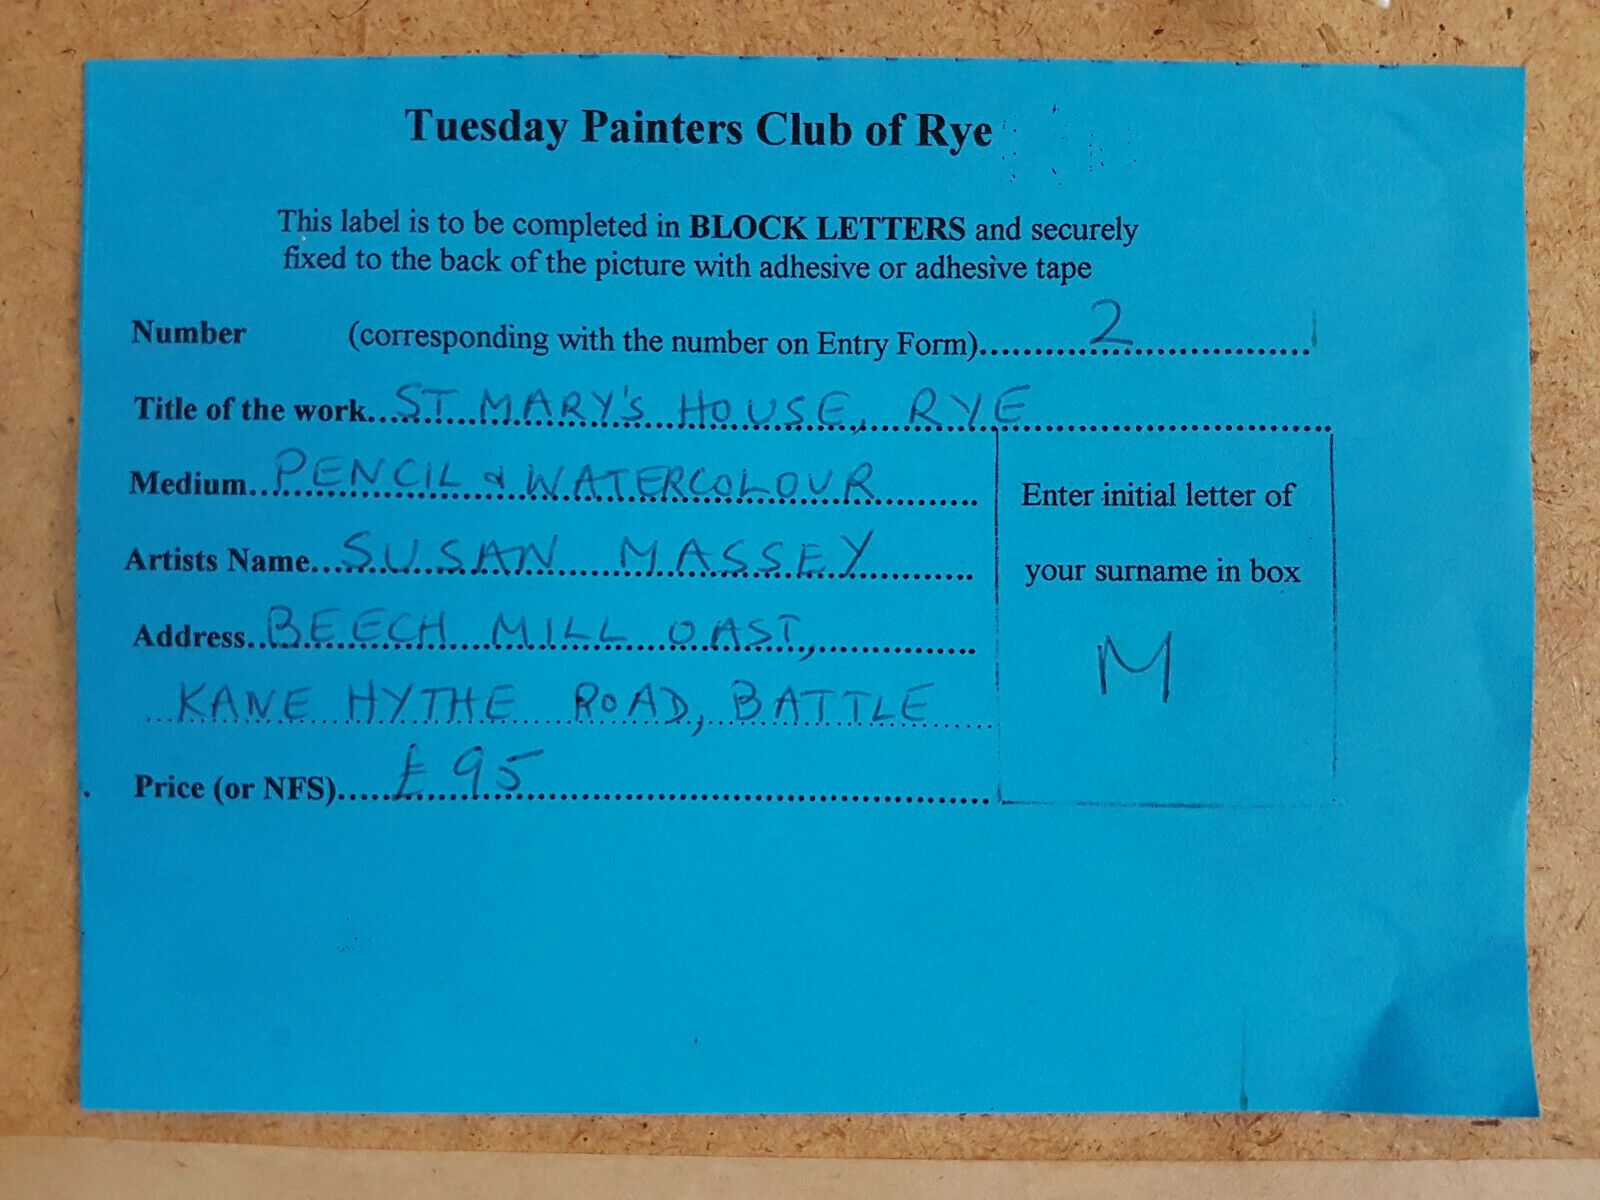 Tuesday Painters Club of Rye
This label is to be completed in BLOCK LETTERS and securely
fixed to the back of the picture with adhesive or adhesive tape
Number (corresponding with the number on Entry Form)..........2..........
Title of the work...ST MARY'S HOUSE, RYE..........
Medium...PENCIL & WATERCOLOUR..........
Enter initial letter of
Artists Name...SUSAN MASSEY..........
your surname in box
Address..BEECH MILL OAST,..........
M
...KANE HYTHE ROAD, BATTLE......
Price (or NFS).....£95..........